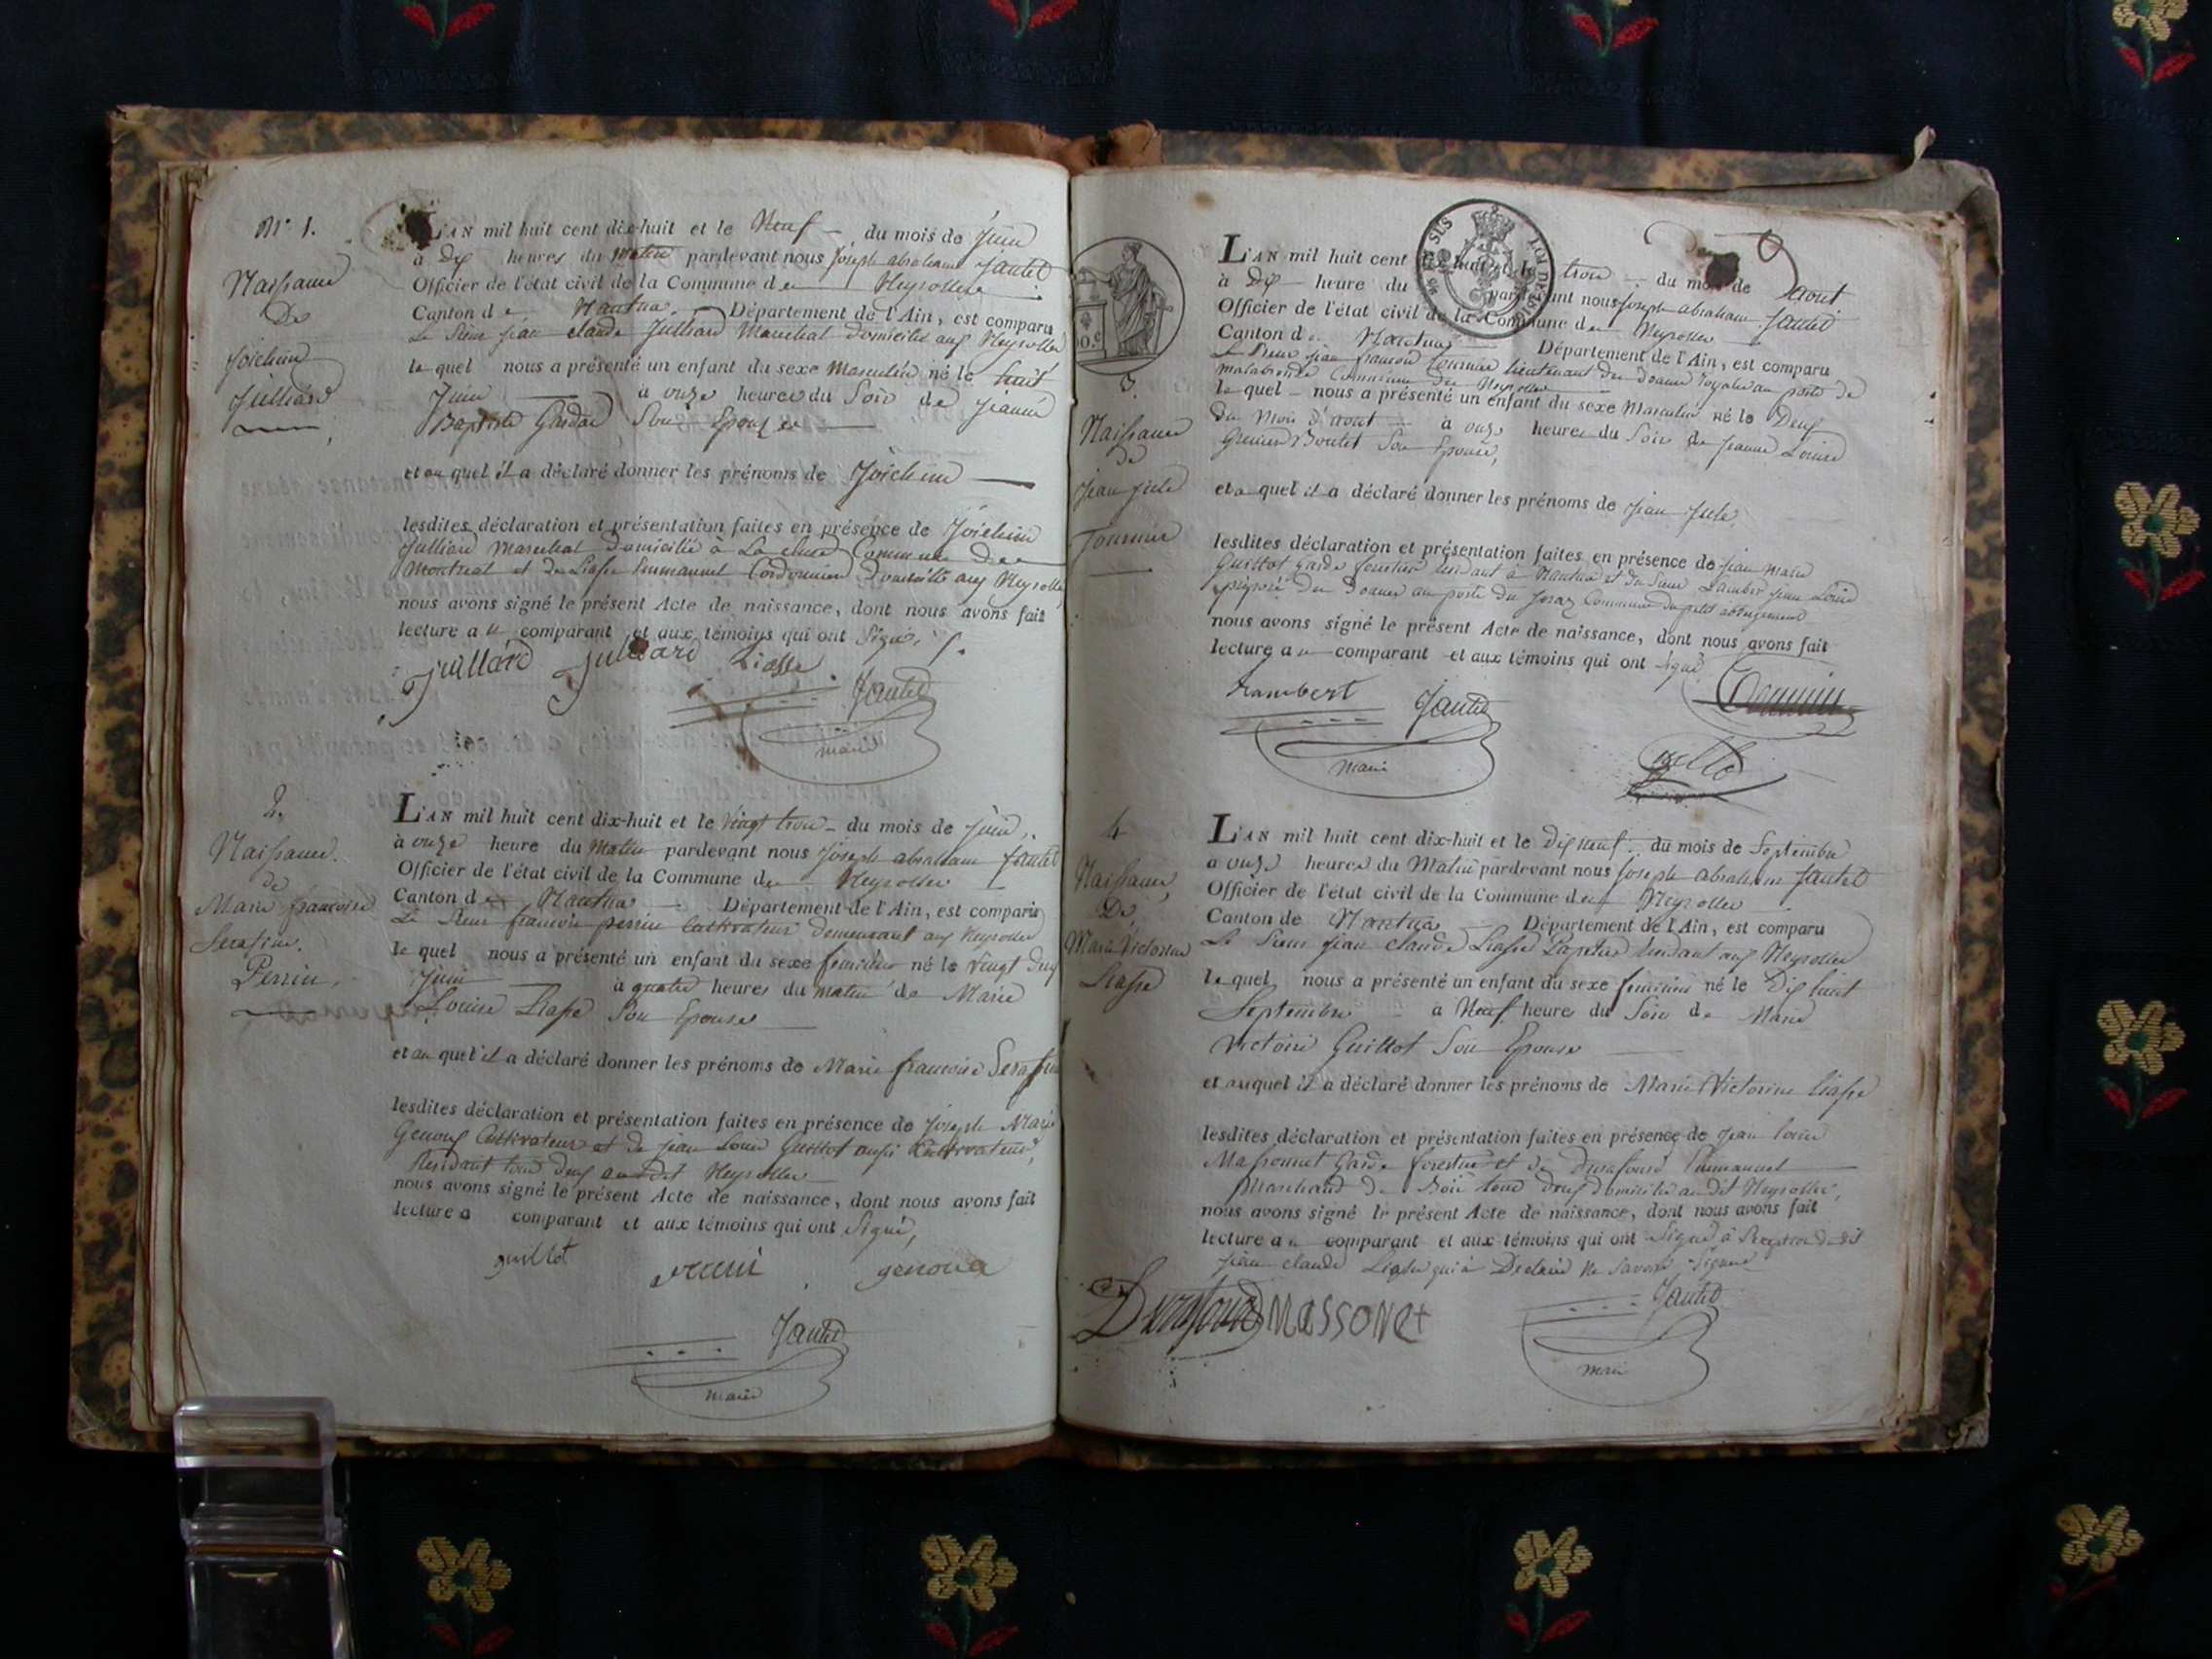 N.° 1.
Naissance
De
Joichim
Julliard
L'AN mil huit cent dix-huit et le Neuf du mois de Juin
à Dix heures du matin pardevant nous Joseph abraham Jantet
Officier de l'état civil de la Commune de Neyrolles
Canton de Nantua. Département de l'Ain, est comparu
Le Sieur jean claude Julliard Marechal domicilié aux Neyrolles
lequel nous a présenté un enfant du sexe Masculin né le huit
Juin à onze heures du Soir de Jeanne
Baptiste Son Epouze
et auquel il a déclaré donner les prénoms de Joichim
lesdites déclaration et présentation faites en présence de Joichim
Julliard Marechal Domicilié à La cluse Commune de
Montreal et de Liasse Emmanuel Cordonnier Domicilié aux Neyrolles
nous avons signé le présent Acte de naissance, dont nous avons fait
lecture au comparant et aux témoins qui ont Signé,
Juillard Julliard Liasse
Jantet
maire
2.
Naissance
de
Marie françoise
Serafine
Perrin,
L'AN mil huit cent dix-huit et le vingt trois du mois de Juin
à onze heure du matin pardevant nous Joseph abraham Jantet
Officier de l'état civil de la Commune de Neyrolles
Canton de Nantua Département de l'Ain, est comparu
Le Sieur françois perrin Cultivateur demeurant aux Neyrolles
lequel nous a présenté un enfant du sexe feminin né le vingt deux
Juin à quatre heures du matin de Marie
Louise Liasse Son Epouse
et auquel il a déclaré donner les prénoms de Marie francoise Serafine
lesdites déclaration et présentation faites en présence de Joseph Marie
Genoux Cultivateur et de jean Louis Guillot aussi Cultivateur,
Residant tous deux audit Neyrolles
nous avons signé le présent Acte de naissance, dont nous avons fait
lecture a comparant et aux témoins qui ont Signé,
guillot genoux
Jantet
maire
3.
Naissance
de
Jean Jule
Tournier
L'AN mil huit cent dix-huit et le trois du mois de aout
à Dix heure du pardevant nous Joseph abraham Jantet
Officier de l'état civil de la Commune de Neyrolles
Canton de Nantua Département de l'Ain, est comparu
Le Sieur jean francois Tournier Lieutenant des Doanes Royales au poste de
malabronde Commune des Neyrolles
lequel nous a présenté un enfant du sexe Masculin né le Deux
du Mois d'aout à onze heures du Soir de Jeanne Louise
Boutet Son Epouse,
et auquel il a déclaré donner les prénoms de Jean Jule
lesdites déclaration et présentation faites en présence de jean Marie
Guillot Garde forestier residant à Nantua et du Sieur Lambert Jean Louis
préposé des Doanes au poste du Commune du petit abbergement
nous avons signé le présent Acte de naissance, dont nous avons fait
lecture au comparant et aux témoins qui ont signé
Jantet
maire
4
Naissance
De
Marie Victorine
Liasse
L'AN mil huit cent dix-huit et le dix neuf du mois de Septembre
à onze heures du Matin pardevant nous Joseph abraham Jantet
Officier de l'état civil de la Commune des Neyrolles
Canton de Nantua Département de l'Ain, est comparu
Le Sieur jean claude Liasse residant aux Neyrolles
lequel nous a présenté un enfant du sexe feminin né le Dix huit
Septembre à Neuf heures du Soir de Marie
Victoire Guillot Son Epouse
et auquel il a déclaré donner les prénoms de Marie Victorine Liasse
lesdites déclaration et présentation faites en présence de jean louis
Massonnet Garde forestier et de Durafourd Emmanuel
Marchand de Bois tous deux domicilié audit Neyrolles,
nous avons signé le présent Acte de naissance, dont nous avons fait
lecture au comparant et aux témoins qui ont Signé à
jean claude Liasse qui à Declaré Ne Savoir Signé
Durafourd MASSONET
Jantet
maire